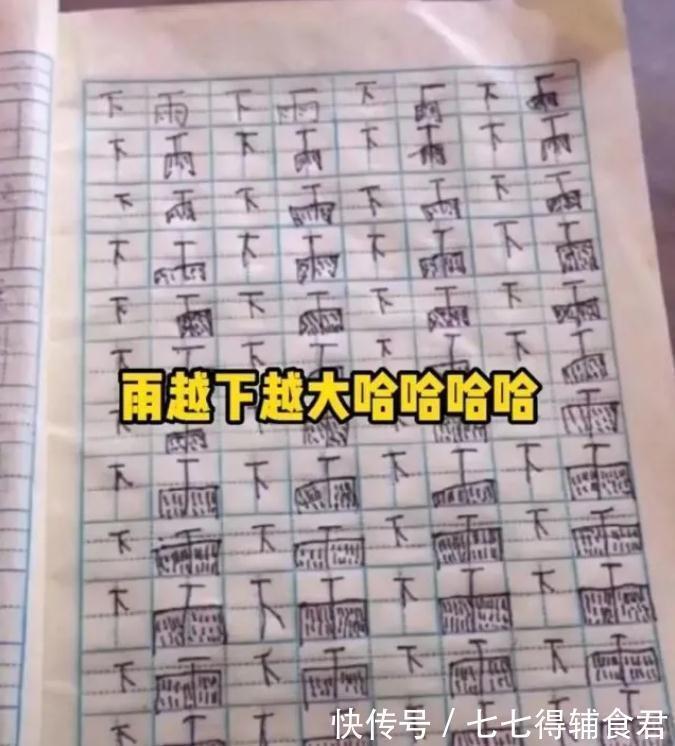 下雨下雨下雨下雨
下雨下雨下雨下雨
下雨下雨下雨下雨
下雨下雨下雨下雨
下雨下雨下雨下雨
下雨下雨下雨下雨
雨越下越大哈哈哈哈
雨雨雨雨
下雨下雨下雨下雨
下雨下雨下雨下雨
下雨下雨下雨下雨
下雨下雨下雨下雨
快传号 / 七七得辅食君